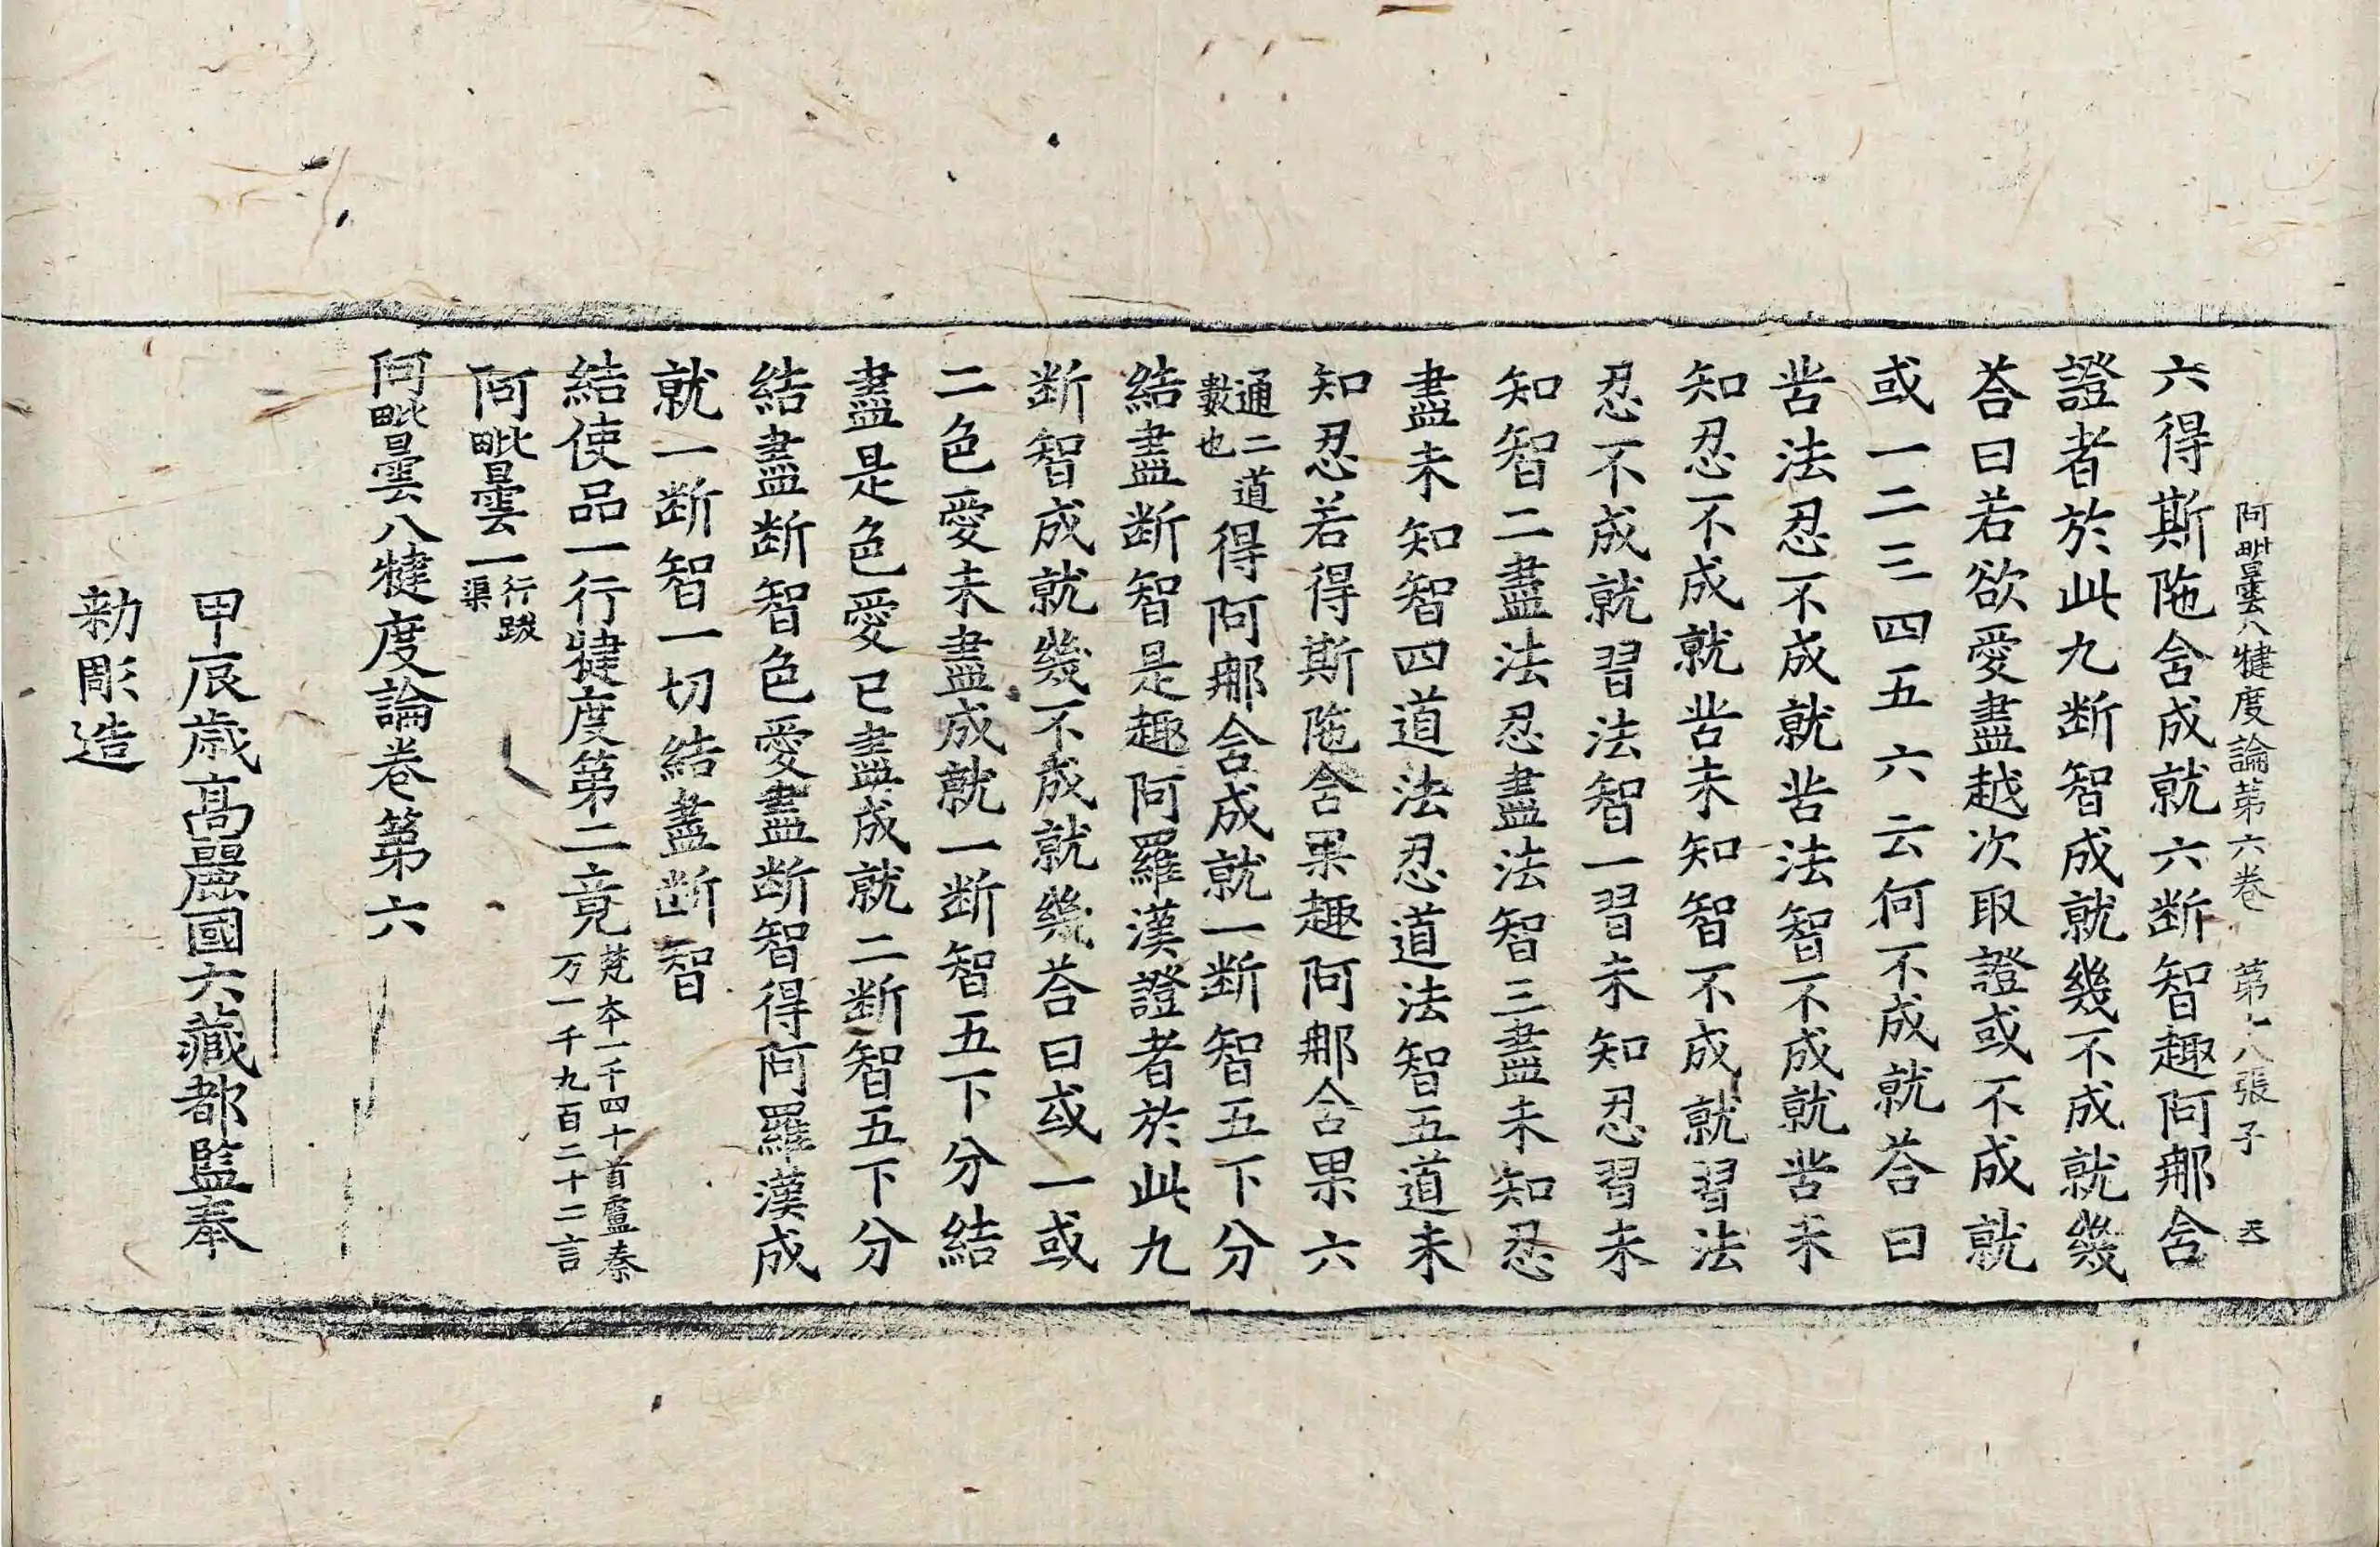 阿毗曇八犍度論第六卷 第十八張 子 天
六得斯陁含成就六断智趣阿那含
證者於此九断智成就幾不成就幾
荅曰若欲愛盡越次取證或不成就
或一二三四五六云何不成就荅曰
苦法忍不成就苦法智不成就苦未
知忍不成就苦未知智不成就習法
忍不成就習法智一習未知忍習未
知智二盡法忍盡法智三盡未知忍
盡未知智四道法忍道法智五道未
知忍若得斯陁含果趣阿那含果六
通二道
數也
得阿那含成就一断智五下分
結盡断智是趣阿羅漢證者於此九
断智成就幾不成就幾荅曰或一或
二色愛未盡成就一断智五下分結
盡是色愛已盡成就二断智五下分
結盡断智色愛盡断智得阿羅漢成
就一断智一切結盡断智
結使品一行犍度第二竟
梵本一千四十首盧秦
万一千九百二十二言
阿毗曇一
行跋
渠
阿毗曇八犍度論卷第六
甲辰歲高麗國大藏都監奉
勑彫造